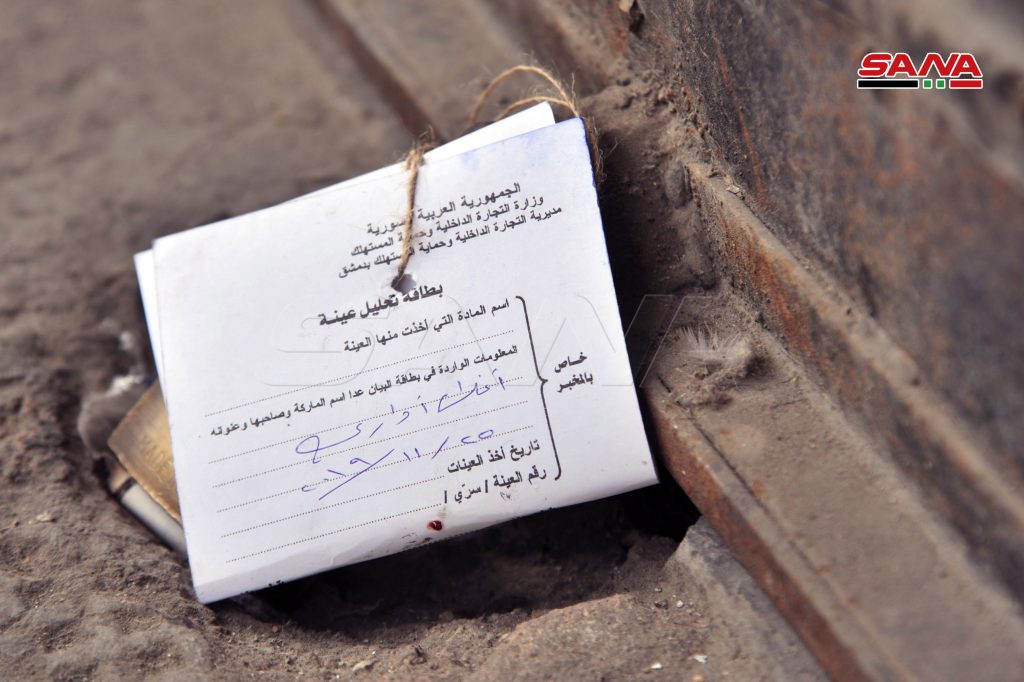 SANA
الجمهورية العربية السورية
وزارة التجارة الداخلية وحماية المستهلك
مديرية التجارة الداخلية وحماية المستهلك بدمشق
بطاقة تحليل عينة
خاص
بالمخبر
اسم المادة التي أخذت منها العينة
المعلومات الواردة في بطاقة البيان عدا اسم الماركة وصاحبها وعنوانه
تاريخ أخذ العينات
٢٠١٩/١١/٢٥
رقم العينة / سرّي /